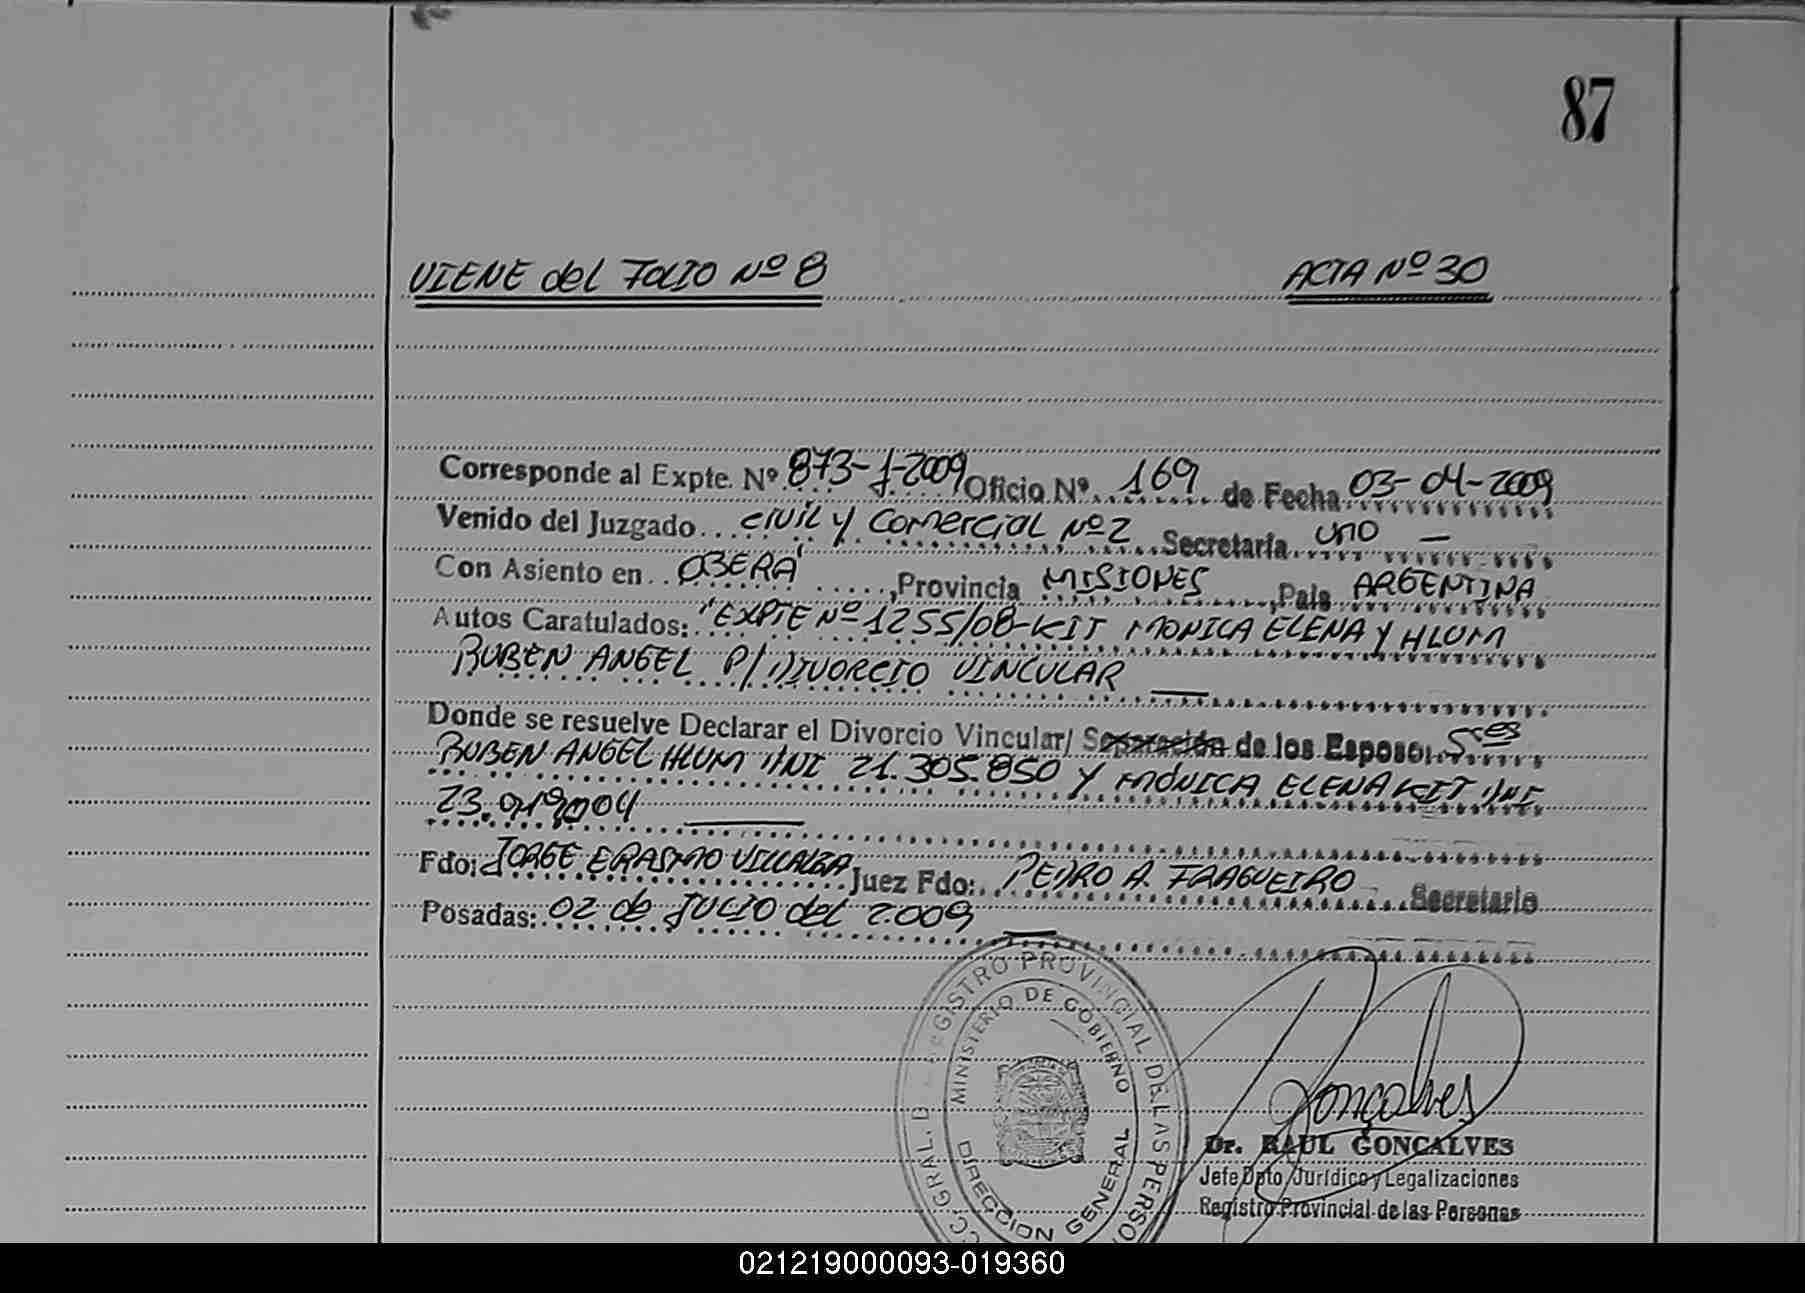 87
VIENE del FOLIO Nº 8 ACTA Nº 30
Corresponde al Expte. Nº 873-J-2009 Oficio Nº 169 de Fecha 03-04-2009
Venido del Juzgado CIVIL y COMERCIAL Nº 2 Secretaría UNO —
Con Asiento en OBERÁ, Provincia MISIONES, Pais ARGENTINA
Autos Caratulados: "EXPTE Nº 1255/08-KIT MONICA ELENA Y HLUM
RUBEN ANGEL P/ DIVORCIO VINCULAR —
Donde se resuelve Declarar el Divorcio Vincular/ Separación de los Esposos: Sres
RUBEN ANGEL HLUM DNI 21.305.850 Y MÓNICA ELENA KIT DNI
23.019004 —
Fdo: JORGE ERASMO VILLALBA Juez Fdo: PEDRO A. FRAGUEIRO Secretario
Posadas: 02 de JULIO del 2.009 —
REGISTRO PROVINCIAL DE LAS PERSO
MINISTERIO DE GOBIERNO
DIRECCION GENERAL
Gonçalves
Dr. RAUL GONCALVES
Jefe Dpto Jurídico y Legalizaciones
Registro Provincial de las Personas
021219000093-019360